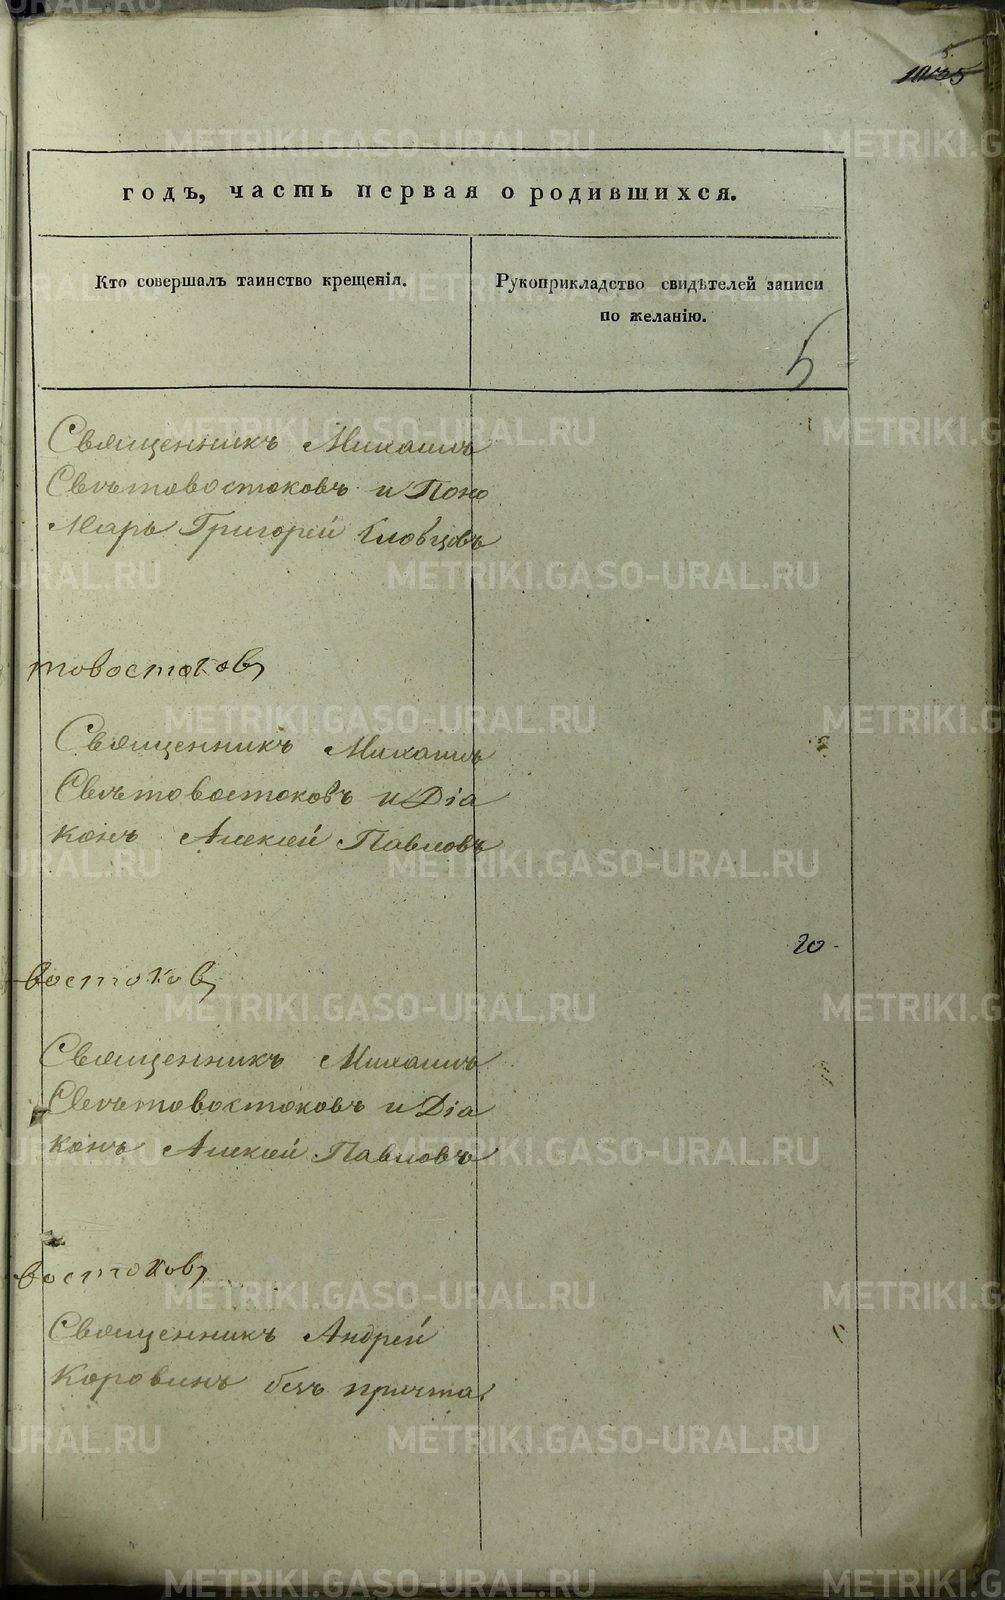 5.
годъ, часть первая о родившихся.
Кто совершалъ таинство крещенія.
Рукоприкладство свидѣтелей записи
по желанію.
5
Священникъ Михаилъ
Свѣтовостоковъ и Поно
марь Григорей Словцовъ
товостоковъ
Священникъ Михаилъ
Свѣтовостоковъ и Діа
конъ Алексѣй Павловъ
20
востоковъ
Священникъ Михаилъ
Свѣтовостоковъ и Діа
конъ Алексѣй Павловъ
востоковъ
Священникъ Андрей
Коровинъ безъ причта.
METRIKI.GASO-URAL.RU